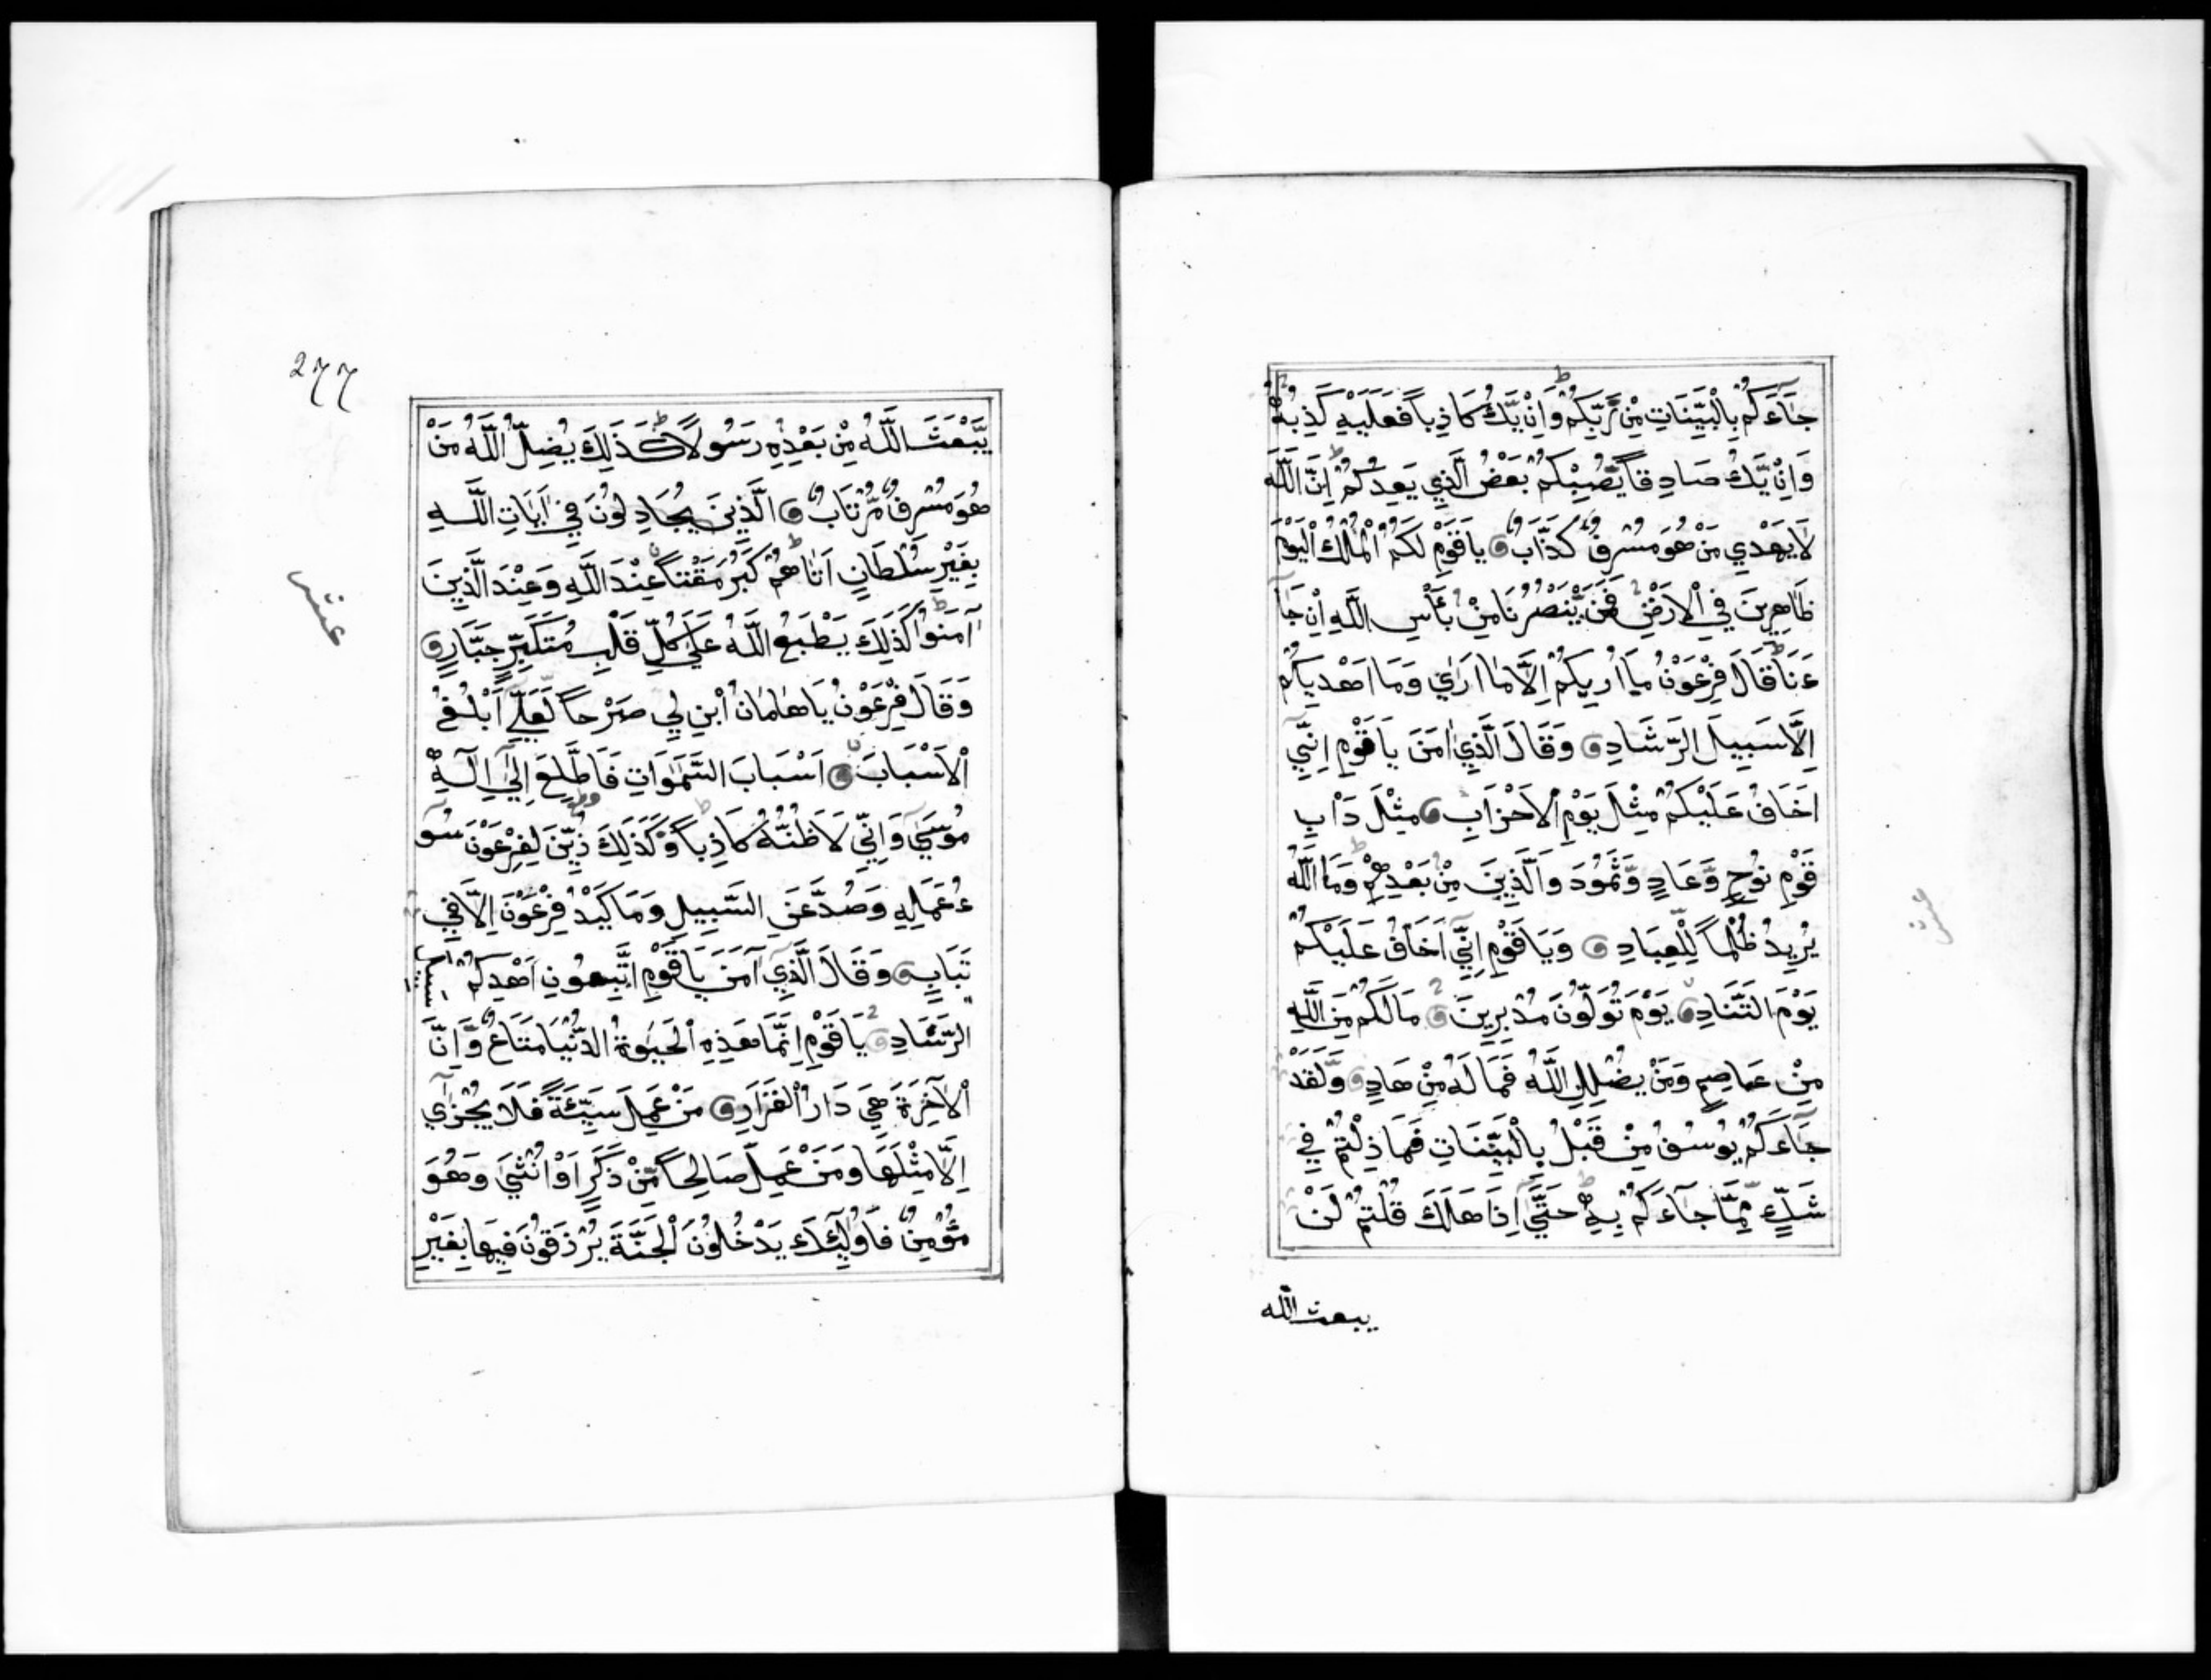 جَآءَكُمْ بِالْبَيِّنَاتِ مِنْ رَّبِّكُمْ وَاِنْ يَّكُ كَاذِباً فَعَلَيْهِ كَذِبُهُ
وَاِنْ يَّكُ صَادِقاً يُّصِبْكُمْ بَعْضُ الَّذِي يَعِدُكُمْ اِنَّ اللَّهَ
لَا يَهْدِي مَنْ هُوَ مُسْرِفٌ كَذَّابٌ يَا قَوْمِ لَكُمُ الْمُلْكُ الْيَوْمَ
ظَاهِرِينَ فِي الْاَرْضِ فَمَنْ يَّنْصُرُنَا مِنْ بَأْسِ اللَّهِ اِنْ جَآ
ءَنَا قَالَ فِرْعَوْنُ مَآ اُرِيكُمْ اِلَّا مَا اَرٰي وَمَا اَهْدِيكُمْ
اِلَّا سَبِيلَ الرَّشَادِ وَقَالَ الَّذِي اٰمَنَ يَا قَوْمِ اِنِّي
اَخَافُ عَلَيْكُمْ مِثْلَ يَوْمِ الْاَحْزَابِ مِثْلَ دَاْبِ
قَوْمِ نُوحٍ وَّعَادٍ وَّثَمُودَ وَالَّذِينَ مِنْ بَعْدِهِمْ وَمَا اللَّهُ
يُرِيدُ ظُلْماً لِّلْعِبَادِ وَيَا قَوْمِ اِنِّي اَخَافُ عَلَيْكُمْ
يَوْمَ التَّنَادِ يَوْمَ تُوَلُّونَ مُدْبِرِينَ مَا لَكُمْ مِنَ اللَّهِ
مِنْ عَاصِمٍ وَمَنْ يُضْلِلِ اللَّهُ فَمَا لَهُ مِنْ هَادٍ وَلَقَدْ
جَآءَكُمْ يُوسُفُ مِنْ قَبْلُ بِالْبَيِّنَاتِ فَمَا زِلْتُمْ فِي
شَكٍّ مِّمَّا جَآءَكُمْ بِهِ حَتَّي اِذَا هَلَكَ قُلْتُمْ لَنْ
يبعث الله
عشر
277
يَّبْعَثَ اللَّهُ مِنْ بَعْدِهِ رَسُولاً كَذَلِكَ يُضِلُّ اللَّهُ مَنْ
هُوَ مُسْرِفٌ مُّرْتَابٌ الَّذِينَ يُجَادِلُونَ فِي اٰيَاتِ اللَّهِ
بِغَيْرِ سُلْطَانٍ اَتَاهُمْ كَبُرَ مَقْتاً عِنْدَ اللَّهِ وَعِنْدَ الَّذِينَ
آمَنُوا كَذَلِكَ يَطْبَعُ اللَّهُ عَلَي كُلِّ قَلْبِ مُتَكَبِّرٍ جَبَّارٍ
وَقَالَ فِرْعَوْنُ يَا هَامَانُ ابْنِ لِي صَرْحاً لَّعَلِّي اَبْلُغُ
الْاَسْبَابَ اَسْبَابَ السَّمٰوَاتِ فَاَطَّلِعَ اِلٰي اِلٰهِ
مُوسَي وَاِنِّي لَاَظُنُّهُ كَاذِباً وَكَذَلِكَ زُيِّنَ لِفِرْعَوْنَ سُو
ءُ عَمَلِهِ وَصُدَّ عَنِ السَّبِيلِ وَمَا كَيْدُ فِرْعَوْنَ اِلَّا فِي
تَبَابٍ وَقَالَ الَّذِي آمَنَ يَا قَوْمِ اتَّبِعُونِ اَهْدِكُمْ سبيل
الرَّشَادِ يَا قَوْمِ اِنَّمَا هَذِهِ الْحَيٰوةُ الدُّنْيَا مَتَاعٌ وَّاِنَّ
الْاٰخِرَةَ هِيَ دَارُ الْقَرَارِ مَنْ عَمِلَ سَيِّئَةً فَلَا يُجْزٰي
اِلَّا مِثْلَهَا وَمَنْ عَمِلَ صَالِحاً مِّنْ ذَكَرٍ اَوْ اُنْثَي وَهُوَ
مُؤْمِنٌ فَاُولٰئِكَ يَدْخُلُونَ الْجَنَّةَ يُرْزَقُونَ فِيهَا بِغَيْرِ
عشر